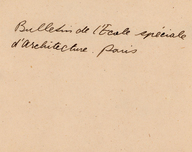 Bulletin de l'Ecole spéciale
d'Architecture. Paris